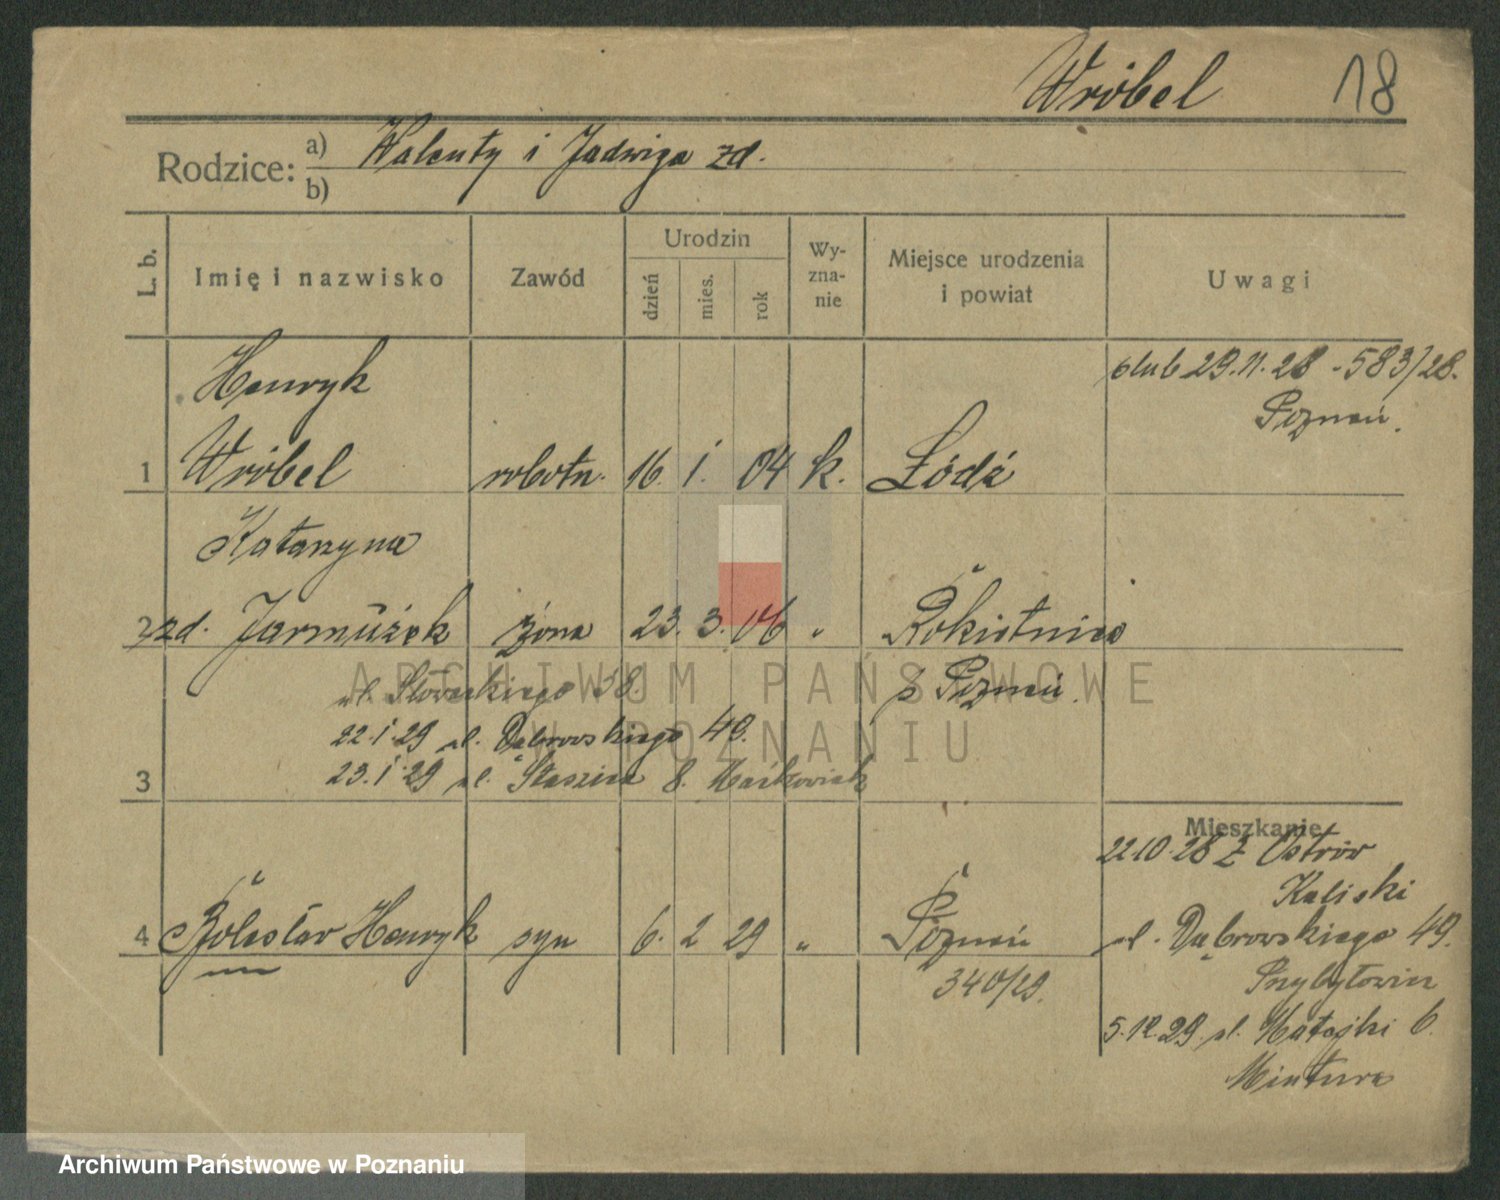 Wróbel 18
Rodzice: a) Walenty i Jadwiga zd.
b)
L. b. Imię i nazwisko Zawód Urodzin dzień mies. rok Wy-zna-nie Miejsce urodzenia i powiat Uwagi
Henryk ślub 29.11.28 - 583/28.
Poznań.
1 Wróbel robotn. 16. 1. 04 k. Łódź
Katarzyna
2 zd. Jarmużek żona 23. 3. 06 " Rokietnica
ul. Słowackiego 38. p Poznań.
22.1.29 ul. Dąbrowskiego 49.
3 23.1.29 ul. Staszica 8.
Mieszkanie
22.10.28 z Ostrów
Kaliski
4 Bolesław Henryk syn 6. 2 29 " Poznań ul. Dąbrowskiego 49.
340/29.
5.12.29 ul. Matejki 6.
ARCHIWUM PAŃSTWOWE
W POZNANIU
Archiwum Państwowe w Poznaniu